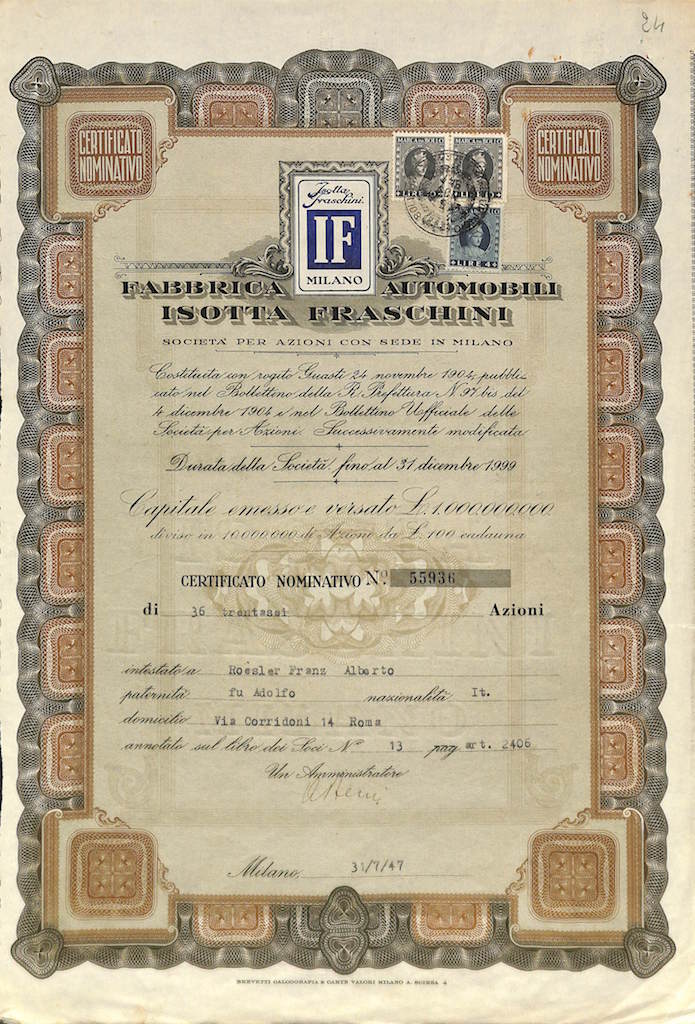 24
CERTIFICATO
NOMINATIVO
CERTIFICATO
NOMINATIVO
MARCA DA BOLLO
MARCA DA BOLLO
LIRE
LIRE
LIRE 4
Isotta
Fraschini.
IF
MILANO
FABBRICA AUTOMOBILI
ISOTTA FRASCHINI
SOCIETÀ PER AZIONI CON SEDE IN MILANO
Costituita con rogito Guasti 24 novembre 1904, pubbli-
cato nel Bollettino della R. Prefettura N 97 bis del
4 dicembre 1904 e nel Bollettino Ufficiale delle
Società per Azioni. Successivamente modificata
Durata della Società fino al 31 dicembre 1999
Capitale emesso e versato L. 1.000.000.000
diviso in 10.000.000 di Azione da L. 100 cadauna
CERTIFICATO NOMINATIVO Nº. 55936
di 36 trentasei Azioni
intestato a Roesler Franz Alberto
paternità fu Adolfo nazionalità It.
domicilio Via Corridoni 14 Roma
annotato sul libro dei Soci Nº 13 pag art. 2406
Un Amministratore
Milano, 31/7/47
BREVETTI CALCOGRAFIA & CARTE VALORI MILANO A. SCIESA 4